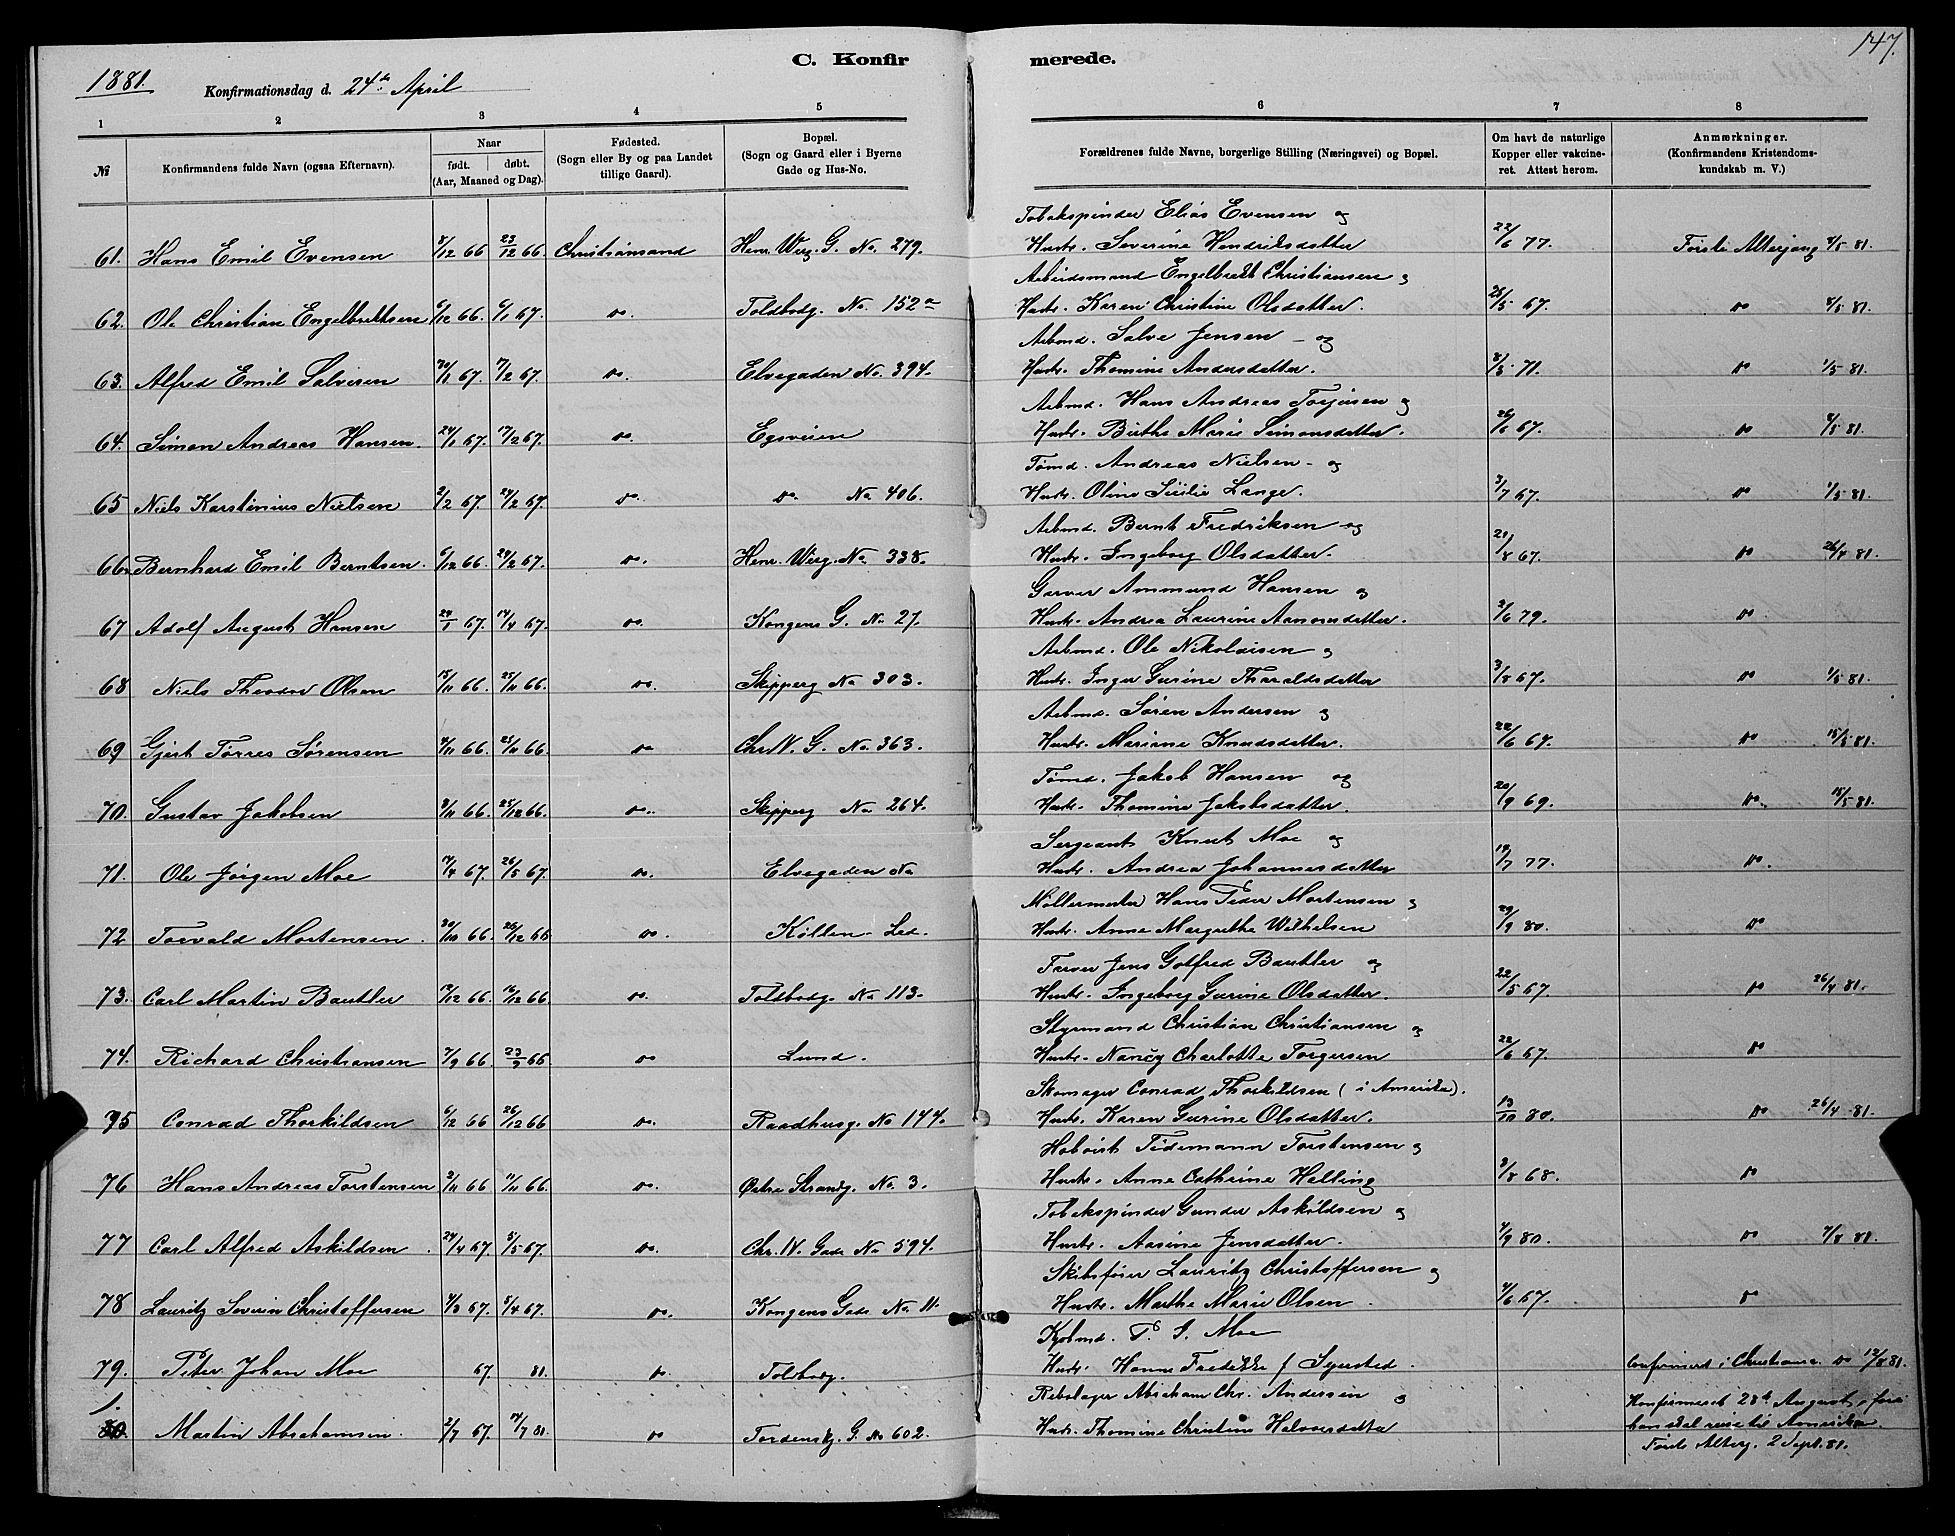 1881.
Konfirmationsdag d. 24de April
C. Konfirmerede.
147.
1 2 3 4 5 6 7 8
№
Konfirmandens fulde Navn (ogsaa Efternavn).
Naar
født. døbt.
(Aar, Maaned og Dag).
Fødested.
(Sogn eller By og paa Landet
tillige Gaard).
Bopæl.
(Sogn og Gaard eller i Byerne
Gade og Hus-No.
Forældrenes fulde Navne, borgerlige Stilling (Næringsvei) og Bopæl.
Om havt de naturlige
Kopper eller vakcine-
ret. Attest herom.
Anmærkninger.
(Konfirmandens Kristendoms-
kundskab m. V.)
Tobakspinder Elias Evensen og
61. Hans Emil Evensen 8/12 66 23/12 66. Christiansand Henr. Werg. G. No. 279. Hustr. Severine Hendriksdatter 22/6 77. Første Altergang 8/5 81.
Arbeidsmand Engelbrekt Christiansen og
62. Ole Christian Engelbrektsen 6/12 66. 6/1 67. do. Toldbodg. No. 152a Hustr. Karen Christine Olsdatter. 28/5 67. do 8/5 81.
Arbmd. Salve Jensen - og
63. Alfred Emil Salvesen 67. 7/2 67. do. Elvegaden No. 394. Hustr. Thomine Andersdatter. 71. do 1/5 81.
Arbmd. Hans Andreas Torjusen og
64. Simon Andreas Hansen. 24/1 67. 17/2 67. do. Egsveien Hustr. Birthe Marie Simonsdatter. 26/6 67. do 8/5 81.
Tømd. Andreas Nielsen - og
65 Niels Karstinius Nielsen 2/2 67. 24/2 67. do. do No 406. Hustr. Oline Lange. 3/7 67. do 1/5 81.
Arbmd. Bernt Fredriksen og
66. Bernhard Emil Berntsen. 6/12 66. 24/2 67. do. Henr. Werg. No. 338. Hustr. Ingeborg Olsdatter. 21/8 67. do 26/4 81.
Garver Ammund Hansen og
67 Adolf August Hansen 24/1 67. 14/4 67. do. Kongens G. No. 27. Hustr. Andrea Laurine Aanonsdatter. 2/6 79. do.
Arbmd. Ole Nikolaisen og
68 Niels Theodor Olsen 13/11 66. 25/11 66. do. Skipperg No 303. Hustr. Inger Gurine Tharaldsdatter 3/8 67. do 1/5 81.
Arbmd. Søren Andersen og
69 Gjert Tørres Sørensen 4/11 66. 25/11 66. do Chr. IV. G. No. 363. Hustr. Mariane Knudsdatter. 22/6 67. do 15/5 81.
Tømd. Jakob Hansen og
70. Gustav Jakobsen 8/11 66. 25/12 66. do. Skipperg No 264. Hustr. Thomine Jakobsdatter. 20/9 69. do. 15/5 81.
Sergeant Knut Moe og
71. Ole Jørgen Moe 17/4 67. 26/5 67. do. Elvegaden No Hustr. Andrea Johannesdatter 19/7 77. do.
Møllermester Hans Peder Mortensen og
72 Torvald Mortensen. 30/10 66. 26/12 66 do. Kollen - Led. Hustr. Anne Margrethe Wilhelsen 29/9 80. do
Farver Jens Gotfred Bautler og
73. Carl Martin Bautler 7/12 66. 16/12 66 do. Toldbodg. No 113. Hustr. Ingeborg Gurine Olsdatter. 22/5 67. do 26/4 81.
Styrmand Christian Christiansen og
74. Richard Christiansen 7/9 66. 23/9 66 do Lund. Hustr. Nancy Charlotte Torgersen 22/6 67. do
Skomager Conrad Thorkildsen (i Amerika).
75 Conrad Thorkildsen 6/12 66 26/12 66 do. Raadhusg. No 144. Hustr. Karen Gurine Olsdatter. 13/10 80. do 26/4 81.
Hoboist Tidemann Torstensen og
76 Hans Andreas Torstensen 2/11 66 11/11 66. do. Østre Strandg. No. 3. Hustr. Anne Cathrine Halling 3/8 68. do
Tobakspinder Gunder Askildsen og
77 Carl Alfred Askildsen. 24/4 67. 5/5 67. do. Chr. IV. Gade No 594. Hustr. Aasine Jensdatter. 4/9 80. do 7/8 81.
Skibsfører Lauritz Christoffersen og
78 Lauritz Severin Christoffersen 4/3 67. 5/4 67. do. Kongens Gade No. 11. Hustr. Marthe Marie Olsen. 4/6 67. do
Kjøbmd. P. S. Moe
79. Peter Johan Moe 67. 81. do. Tolbodg. Hustr. Hanne Fredikke f Syersted. Confirmert i Christiania do 12/8 81.
Rebslager Abraham Chr. Andersen og
1.
80. Martin Abrahamsen. 2/7 67. 14/7 81. do Tordenskj. G. No 602. Hustr. Thomine Christine Halvorsdatter
Konfirmeret 28de August, før
han skal reise til Amerika.
Første Alterg. 2 Sept. 81.